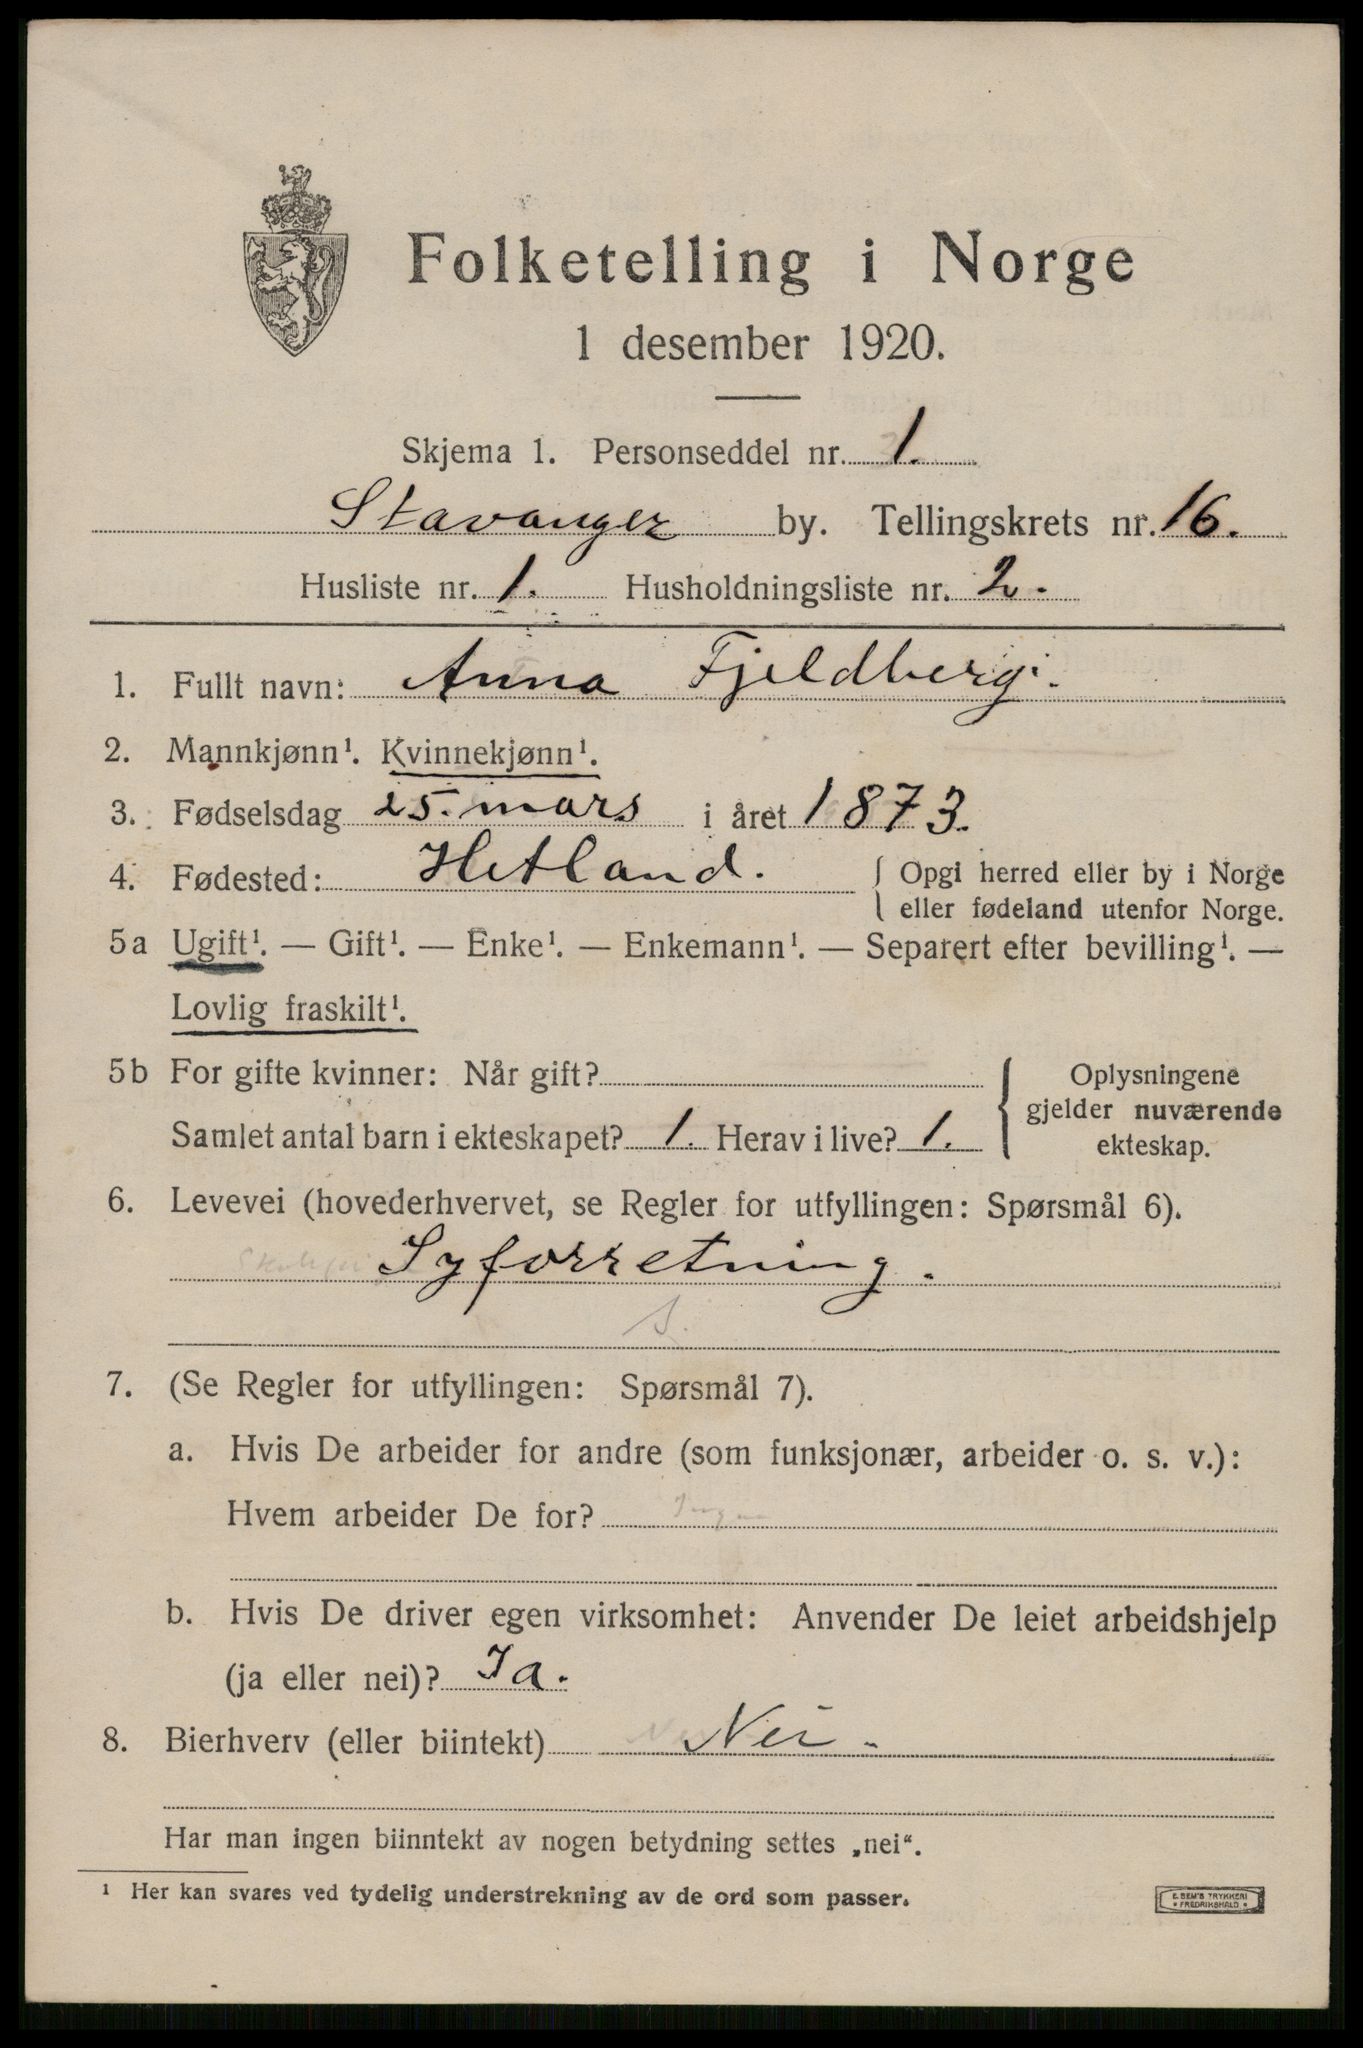 Folketelling i Norge
1 desember 1920.
Skjema 1. Personseddel nr. 1.
Stavanger by. Tellingskrets nr. 16.
Husliste nr. 1. Husholdningsliste nr. 2.
1. Fullt navn: Anna Fjeldberg.
2. Mannkjønn¹. Kvinnekjønn¹.
3. Fødselsdag 25. mars i året 1873.
4. Fødested: Hetland. { Opgi herred eller by i Norge
eller fødeland utenfor Norge.
5a Ugift¹. — Gift¹. — Enke¹. — Enkemann¹. — Separert efter bevilling¹. —
Lovlig fraskilt¹.
5b For gifte kvinner: Når gift?
Samlet antal barn i ekteskapet? 1. Herav i live? 1.
{ Oplysningene
gjelder nuværende
ekteskap.
6. Levevei (hovederhvervet, se Regler for utfyllingen: Spørsmål 6).
Syforretning.
7. (Se Regler for utfyllingen: Spørsmål 7).
a. Hvis De arbeider for andre (som funksjonær, arbeider o. s. v.):
Hvem arbeider De for? Ingen
b. Hvis De driver egen virksomhet: Anvender De leiet arbeidshjelp
(ja eller nei)? Ja.
8. Bierhverv (eller biintekt) Nei.
Har man ingen biinntekt av nogen betydning settes „nei“.
¹ Her kan svares ved tydelig understrekning av de ord som passer.
E. SEM'S TRYKKERI
* FREDRIKSHALD *